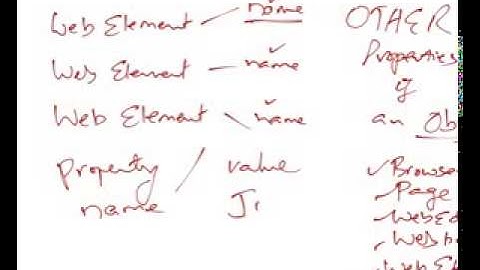 Web Element name
Web Element name
Web Element name
Property / value
name
OTHER
Properties
of
an Ob
Browse
Page
WebEd